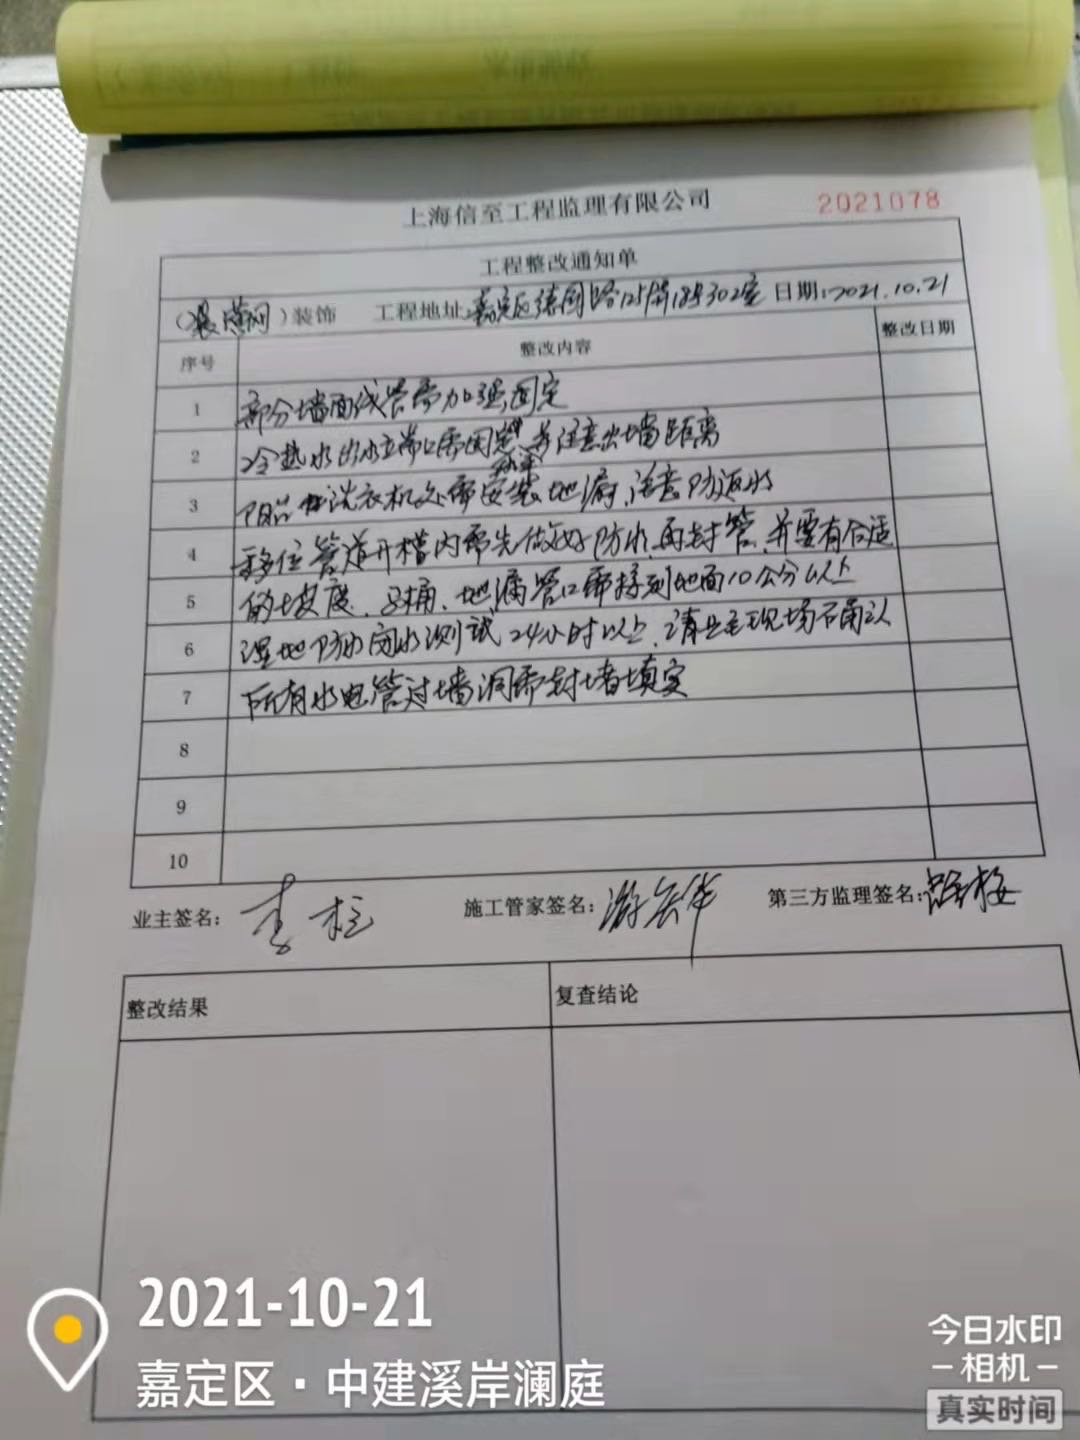 上海信至工程监理有限公司 2021078
工程整改通知单
(装潢网)装饰 工程地址:嘉定区德园路125弄18号302室 日期:2021.10.21
序号 整改内容 整改日期
1 部分墙面线管需加强固定
2 冷热水出水立管口需固定牢,并注意出墙距离
3 阳台洗衣机处需安装地漏,注意防返水
4 移位管道开槽内需先做好防水,再封管,并要有合适
5 的坡度,马桶、地漏管口需接到地面10公分以上
6 湿地防水闭水测试24小时以上,请业主现场确认
7 所有水电管过墙洞需封堵填实
8
9
10
业主签名: 施工管家签名: 第三方监理签名:
整改结果 复查结论
2021-10-21
嘉定区·中建溪岸澜庭
今日水印
-相机-
真实时间